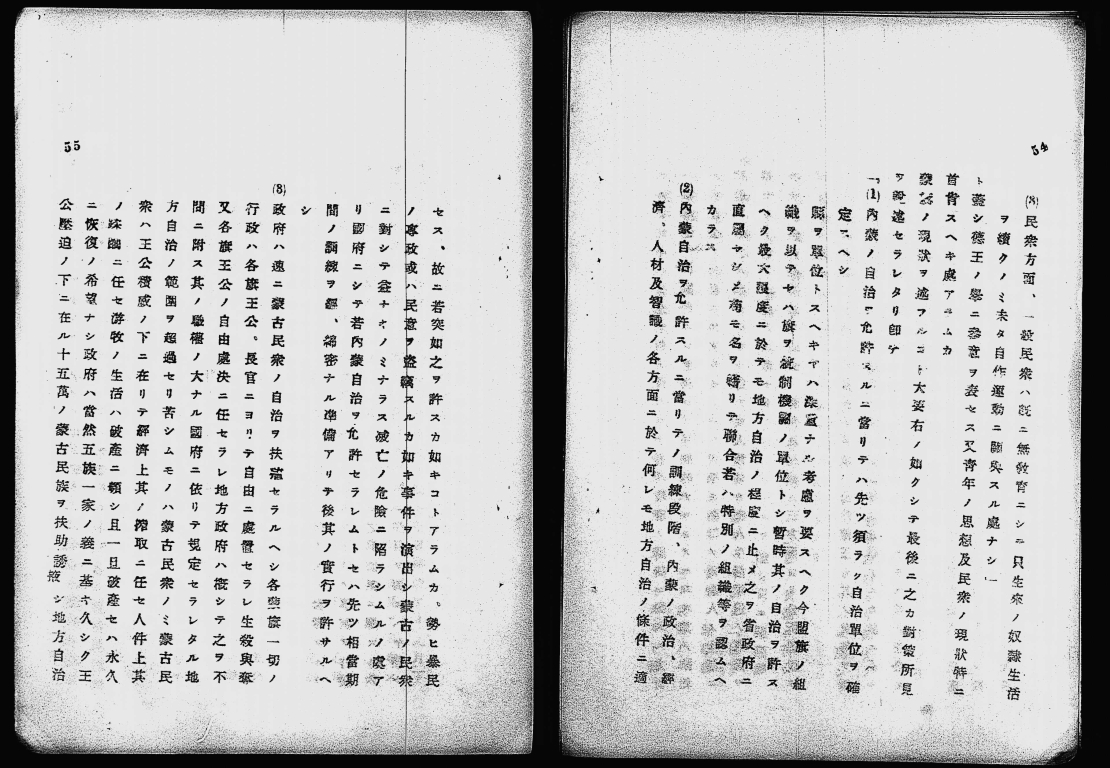 54
(3)民衆方面、一般民衆ハ既ニ無敎育ニシテ只生來ノ奴隷生活
ヲ續クノミ未タ自作運動ニ關與スル處ナシ
ト雖シ德王ノ擧ニ參意ヲ表セス又靑年ノ思想及民衆ノ現狀特ニ
首肯スヘキ處アラムカ
ノ現狀ヲ述フルコト大要右ノ如クシテ最後ニ之カ對策所見
ヲ述セラレタリ卽チ
一、
(1)內蒙ノ自治ヲ允許スルニ當リテハ先ツ須ラク自治單位ヲ確
定スヘシ
縣ヲ單位トスヘキヤハ深甚ナル考慮ヲ要スヘク今盟旗ノ組
織ヲ以テセハ旗ヲ統制機關ノ單位トシ暫時其ノ自治ヲ許ス
ヘク最大限度ニ於テモ地方自治ノ程度ニ止メ之ヲ省政府ニ
直屬セシメ苟モ名ヲ藉リテ聯合若ハ特別ノ組織等ヲ認ムヘ
カラス
(2)內蒙自治ヲ允許スルニ當リテノ訓練段階、內蒙ノ政治、經
濟、人材及智識ノ各方面ニ於テ何レモ地方自治ノ條件ニ適
55
セス、故ニ若突如之ヲ許スカ如キコトアラムカ。勢ヒ暴民
ノ專政或ハ民意ヲ盜竊スルカ如キ事件ヲ演出シ蒙古ノ民衆
ニ對シテ益ナキノミナラス滅亡ノ危險ニ陷ラシムルノ處ア
リ國府ニシテ若內蒙自治ヲ允許セラレムトセハ先ツ相當期
間ノ訓練ヲ經、綿密ナル準備アリテ後其ノ實行ヲ許サルヘ
シ
(3)政府ハ速ニ蒙古民衆ノ自治ヲ扶殖セラルヘシ各盟旗一切ノ
行政ハ各旗王公。長官ニヨリテ自由ニ處置セラレ生殺與奪
又各旗王公ノ自由處決ニ任セラレ地方政府ハ槪シテ之ヲ不
問ニ附ス其ノ職權ノ大ナル國府ニ依リテ規定セラレタル地
方自治ノ範圍ヲ超過セリ苦シムモノハ蒙古民衆ノミ蒙古民
衆ハ王公積威ノ下ニ在リテ經濟上其ノ搾取ニ任セ人件上其
ノ蹂躙ニ任セ游牧ノ生活ハ破產ニ瀕シ且一旦破產セハ永久
ニ恢復ノ希望ナシ政府ハ當然五族一家ノ義ニ基キ久シク王
公壓迫ノ下ニ在ル十五萬ノ蒙古民族ヲ扶助誘掖シ地方自治